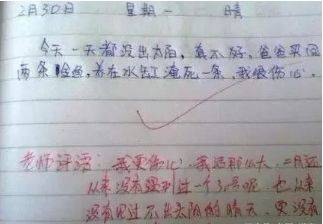 2月30日 星期一 晴
今天一天都没出太阳，真不好，爸爸买回
两条鱼，养在水缸淹死一条，我很伤心。
老师评语：我更伤心，我活那么大，二月还
从来没有遇到过一个30号呢，也从来
没有见过不出太阳的晴天，更没有